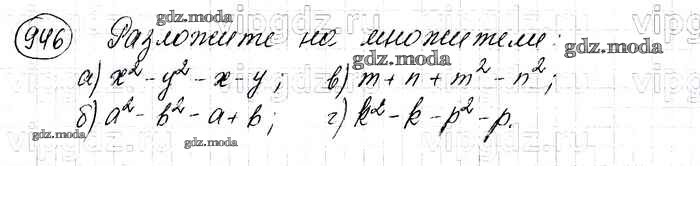 946 Разложите на множители:
а) x² - y² - x - y; в) m + n + m² - n²;
б) a² - b² - a + b; г) k² - k - p² - p.
gdz.moda
gdz.moda
gdz.moda
gdz.moda
gdz.moda
gdz.moda
vipgdz.com
vipgdz.com